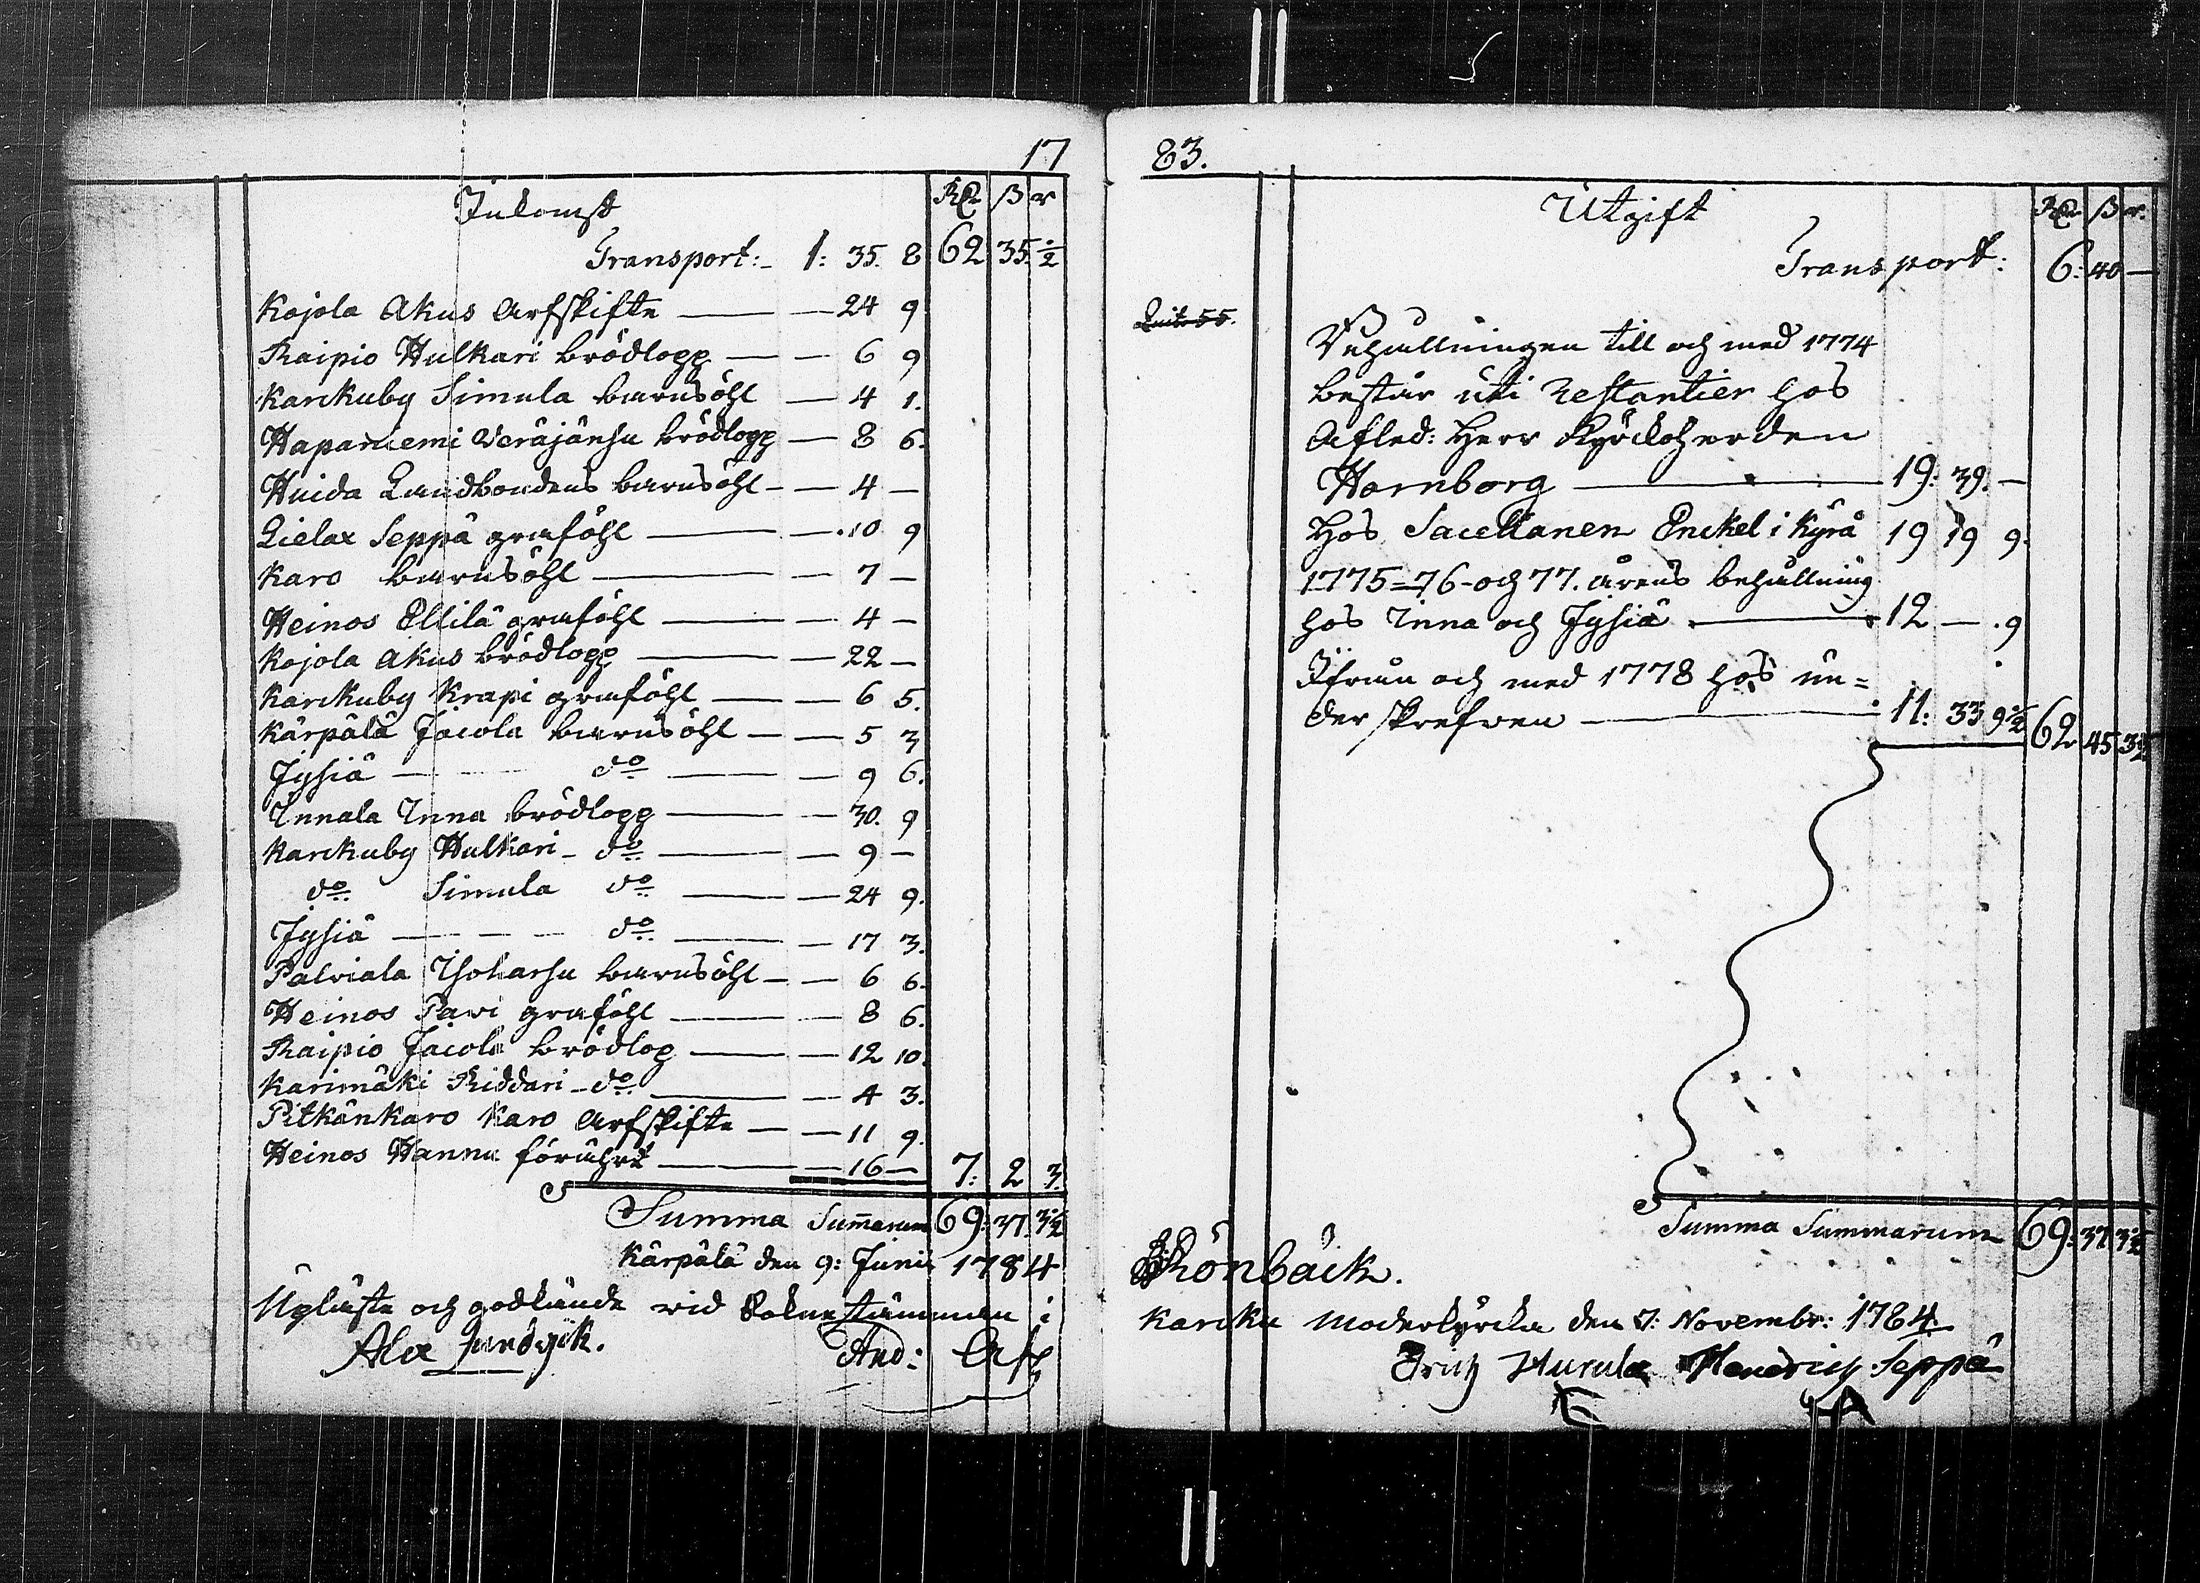 17
Inkomst Rd ß r
Transport: 1: 35. 8 62 35. ½
Kojola Akus Arfskifte — — 24 9
Raipio Hulkari brödlopp — — 6 9
Karckuby Simula barnsöhl — 4 1.
Hapaniemi Veräjänsu brödlopp — 8 6.
Huida Landbondens barnsöhl — — 4 —
Lielax Seppä graföhl — — 10 9
Karo barnsöhl — — 7 —
Heinos Ellilä graföhl — — 4 —
Kojola Akus brödlopp — — 22 —
Karckuby Krapi graföhl — — 6 5.
Kärpälä Jacola barnsöhl — — 5 3
Jysiä — do — — 9 6.
Innala Inna brödlopp — — 30. 9
Karckuby Hulkari — do — — 9 —
do Simula do — — 24 9.
Jysiä — — — do — — 17 3.
Palviala Isotarsu barnsöhl — — 6 6.
Heinos Pavi graföhl — — 8 6.
Raipio Jacola brödlop — — 12 10.
Karimäki Riddari — do — — 4 3.
Pitkänkaro Karo Arfskifte — — 11 9.
Heinos Hannu förährt — — 16 — 7: 2 3.
Summa Summarum 69: 37. 3½
Kärpälä den 9: Junii 1784
Upläste och godkände vid Soknestämman i
Alex
And:
83.
Utgift Rd ß r.
Transport: 6: 40 —
Behållningen till och med 1774
består uti Restantier hos
Afled: Herr Kyrckoherden
Hornborg — 19: 39. —
Hos Sacellanen Enckel i Kyrå 19 19 9.
1775=76- och 77. årens behållning
hos Inna och Jysiä — 12 — . 9
Ifrån och med 1778 hos un=
derskrefwen — 11: 33 9½ 62 45 3½
Summa Summarum 69: 37 3½
Rönbäck.
Karcku Moderkyrcka den 7: Novembr: 1784
Hurula Hendrich Seppä